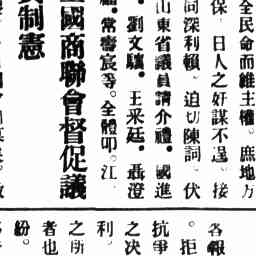 全民命而維主權。庶地方
保。日人之奸謀不逞。接
同深利賴。迫切陳詞。伏
山東省議員請介禮。國進
。劉文驥。王采廷。聶澄
。常書宸等。全體叩。江。
國商聯會督促議
制憲
各報
。拒
抗爭
之决
利。
之所
者也
紛。